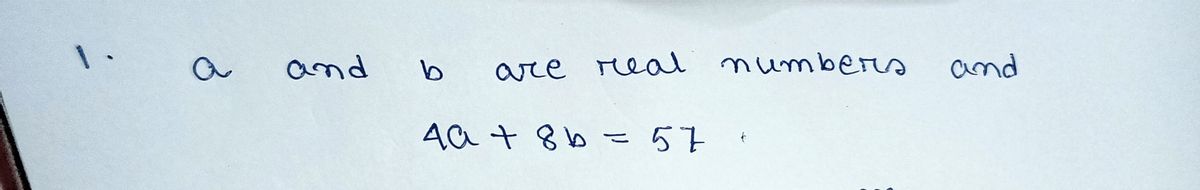 1. a and b are real numbers and
4a + 8b = 57